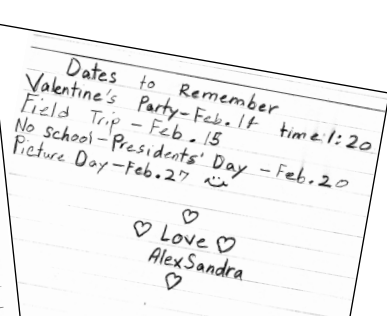 Dates to Remember
Valentine's Party-Feb.14 time:1:20
Field Trip - Feb. 15
No school-Presidents' Day -Feb.20
Picture Day-Feb.27
♡
♡ Love ♡
AlexSandra
♡